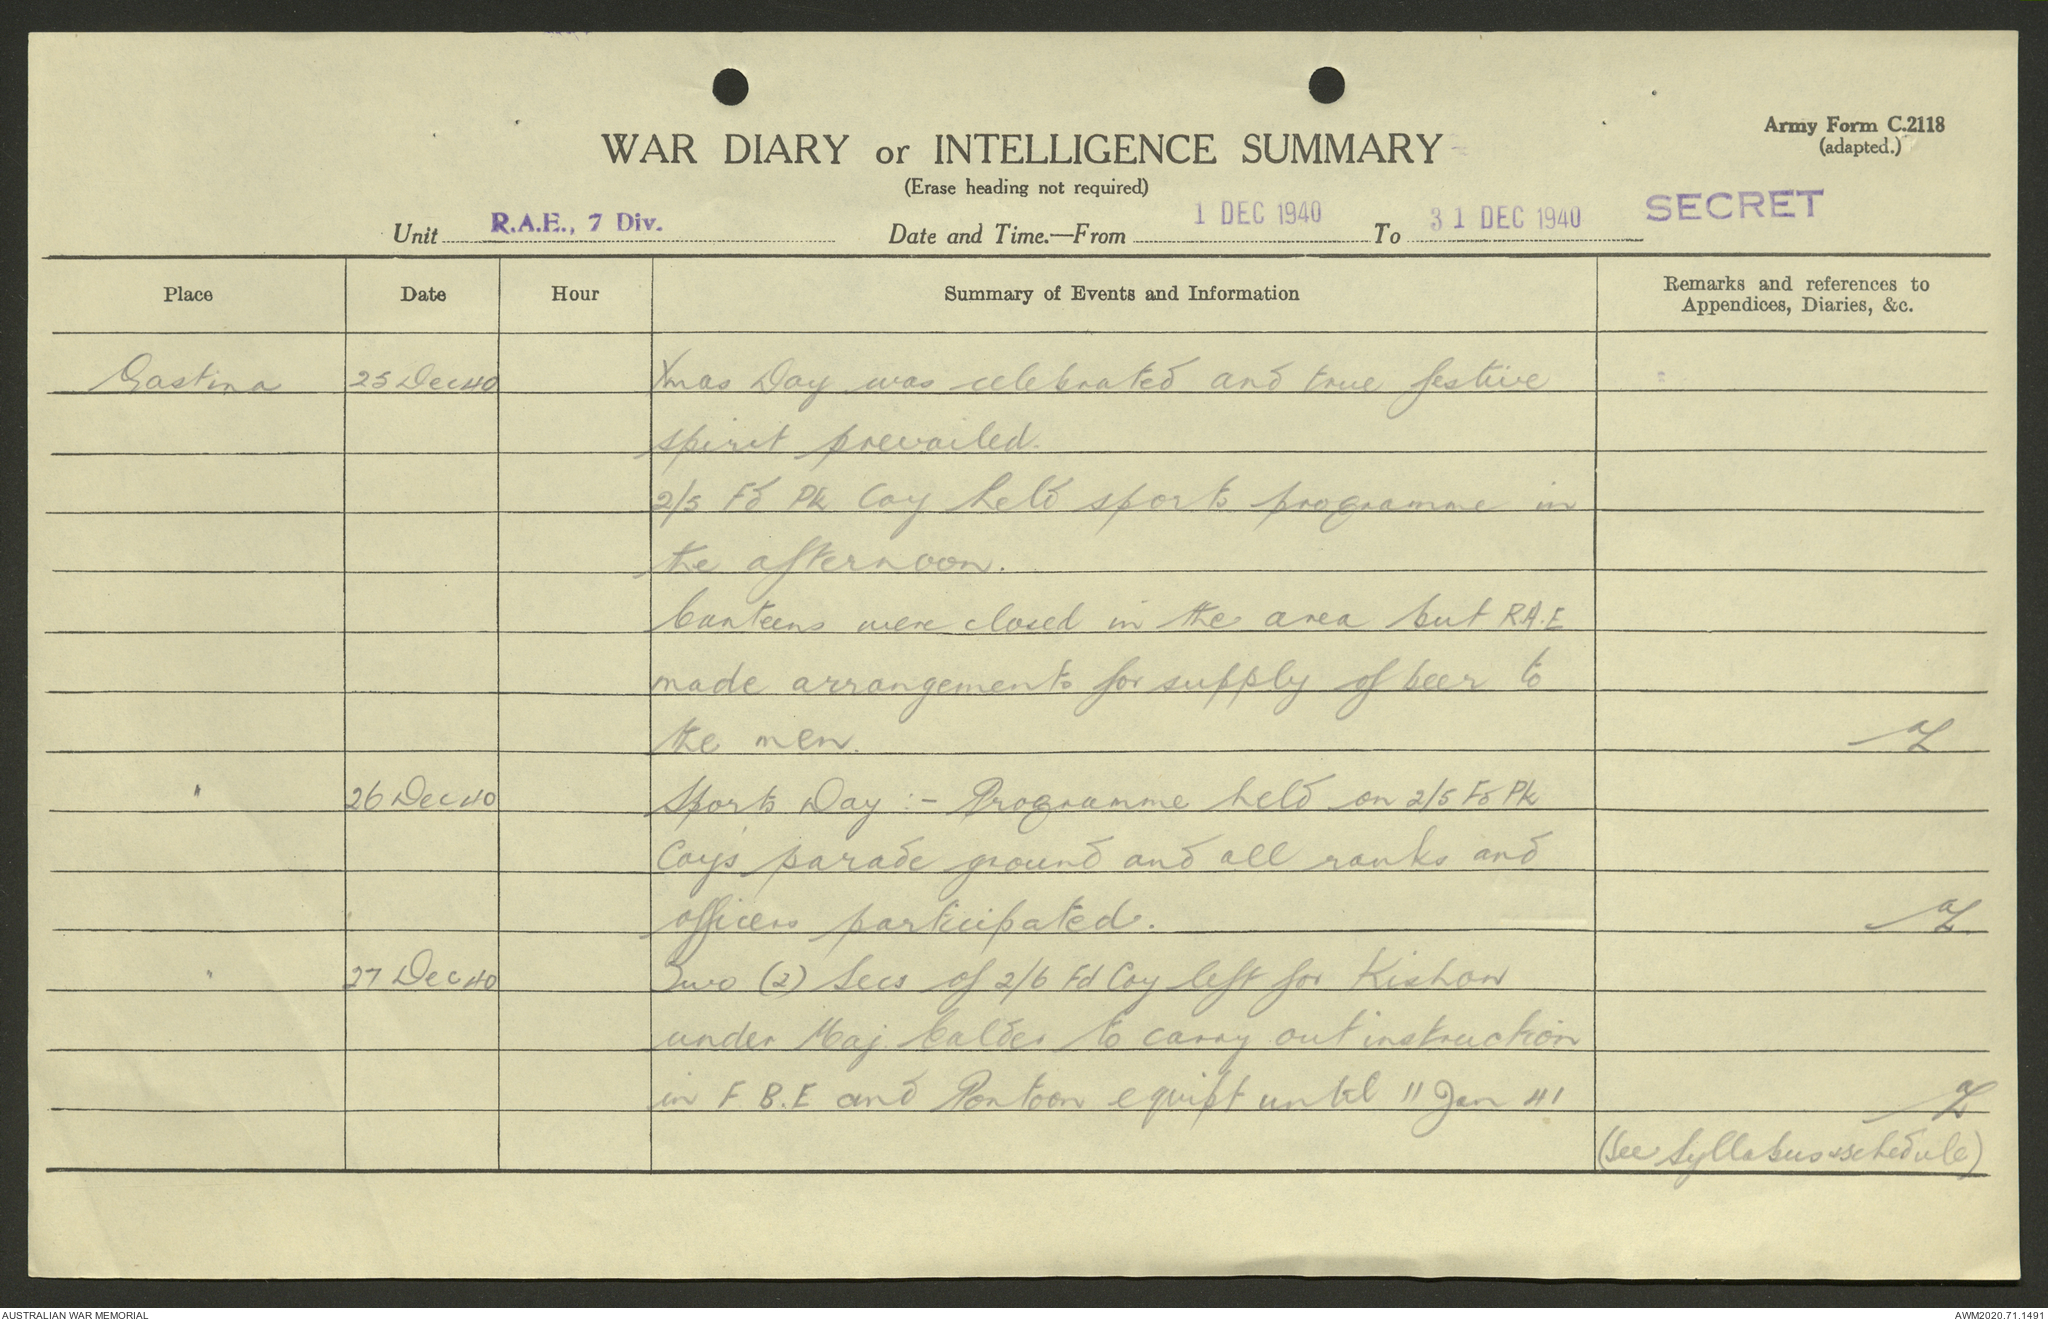 Army Form C.2118
(adapted.)
WAR DIARY or INTELLIGENCE SUMMARY
(Erase heading not required)
SECRET
Unit R.A.E., 7 Div. Date and Time.—From 1 DEC 1940 To 31 DEC 1940
Place Date Hour Summary of Events and Information Remarks and references to
Appendices, Diaries, &c.
Gastina 25 Dec 40 Xmas Day was celebrated and true festive
spirit prevailed.
2/5 Fd Pk Coy held sports programme in
the afternoon.
Canteens were closed in the area but R.A.E
made arrangements for supply of beer to
the men.
" 26 Dec 40 Sports Day :- Programme held on 2/5 Fd Pk
Coy's parade ground and all ranks and
officers participated.
" 27 Dec 40 Two (2) Secs of 2/6 Fd Coy left for Kishon
under Maj. Calder to carry out instruction
in F.B.E and Pontoon equipt until 11 Jan 41
(See Syllabus & schedule)
AUSTRALIAN WAR MEMORIAL AWM2020.71.1491